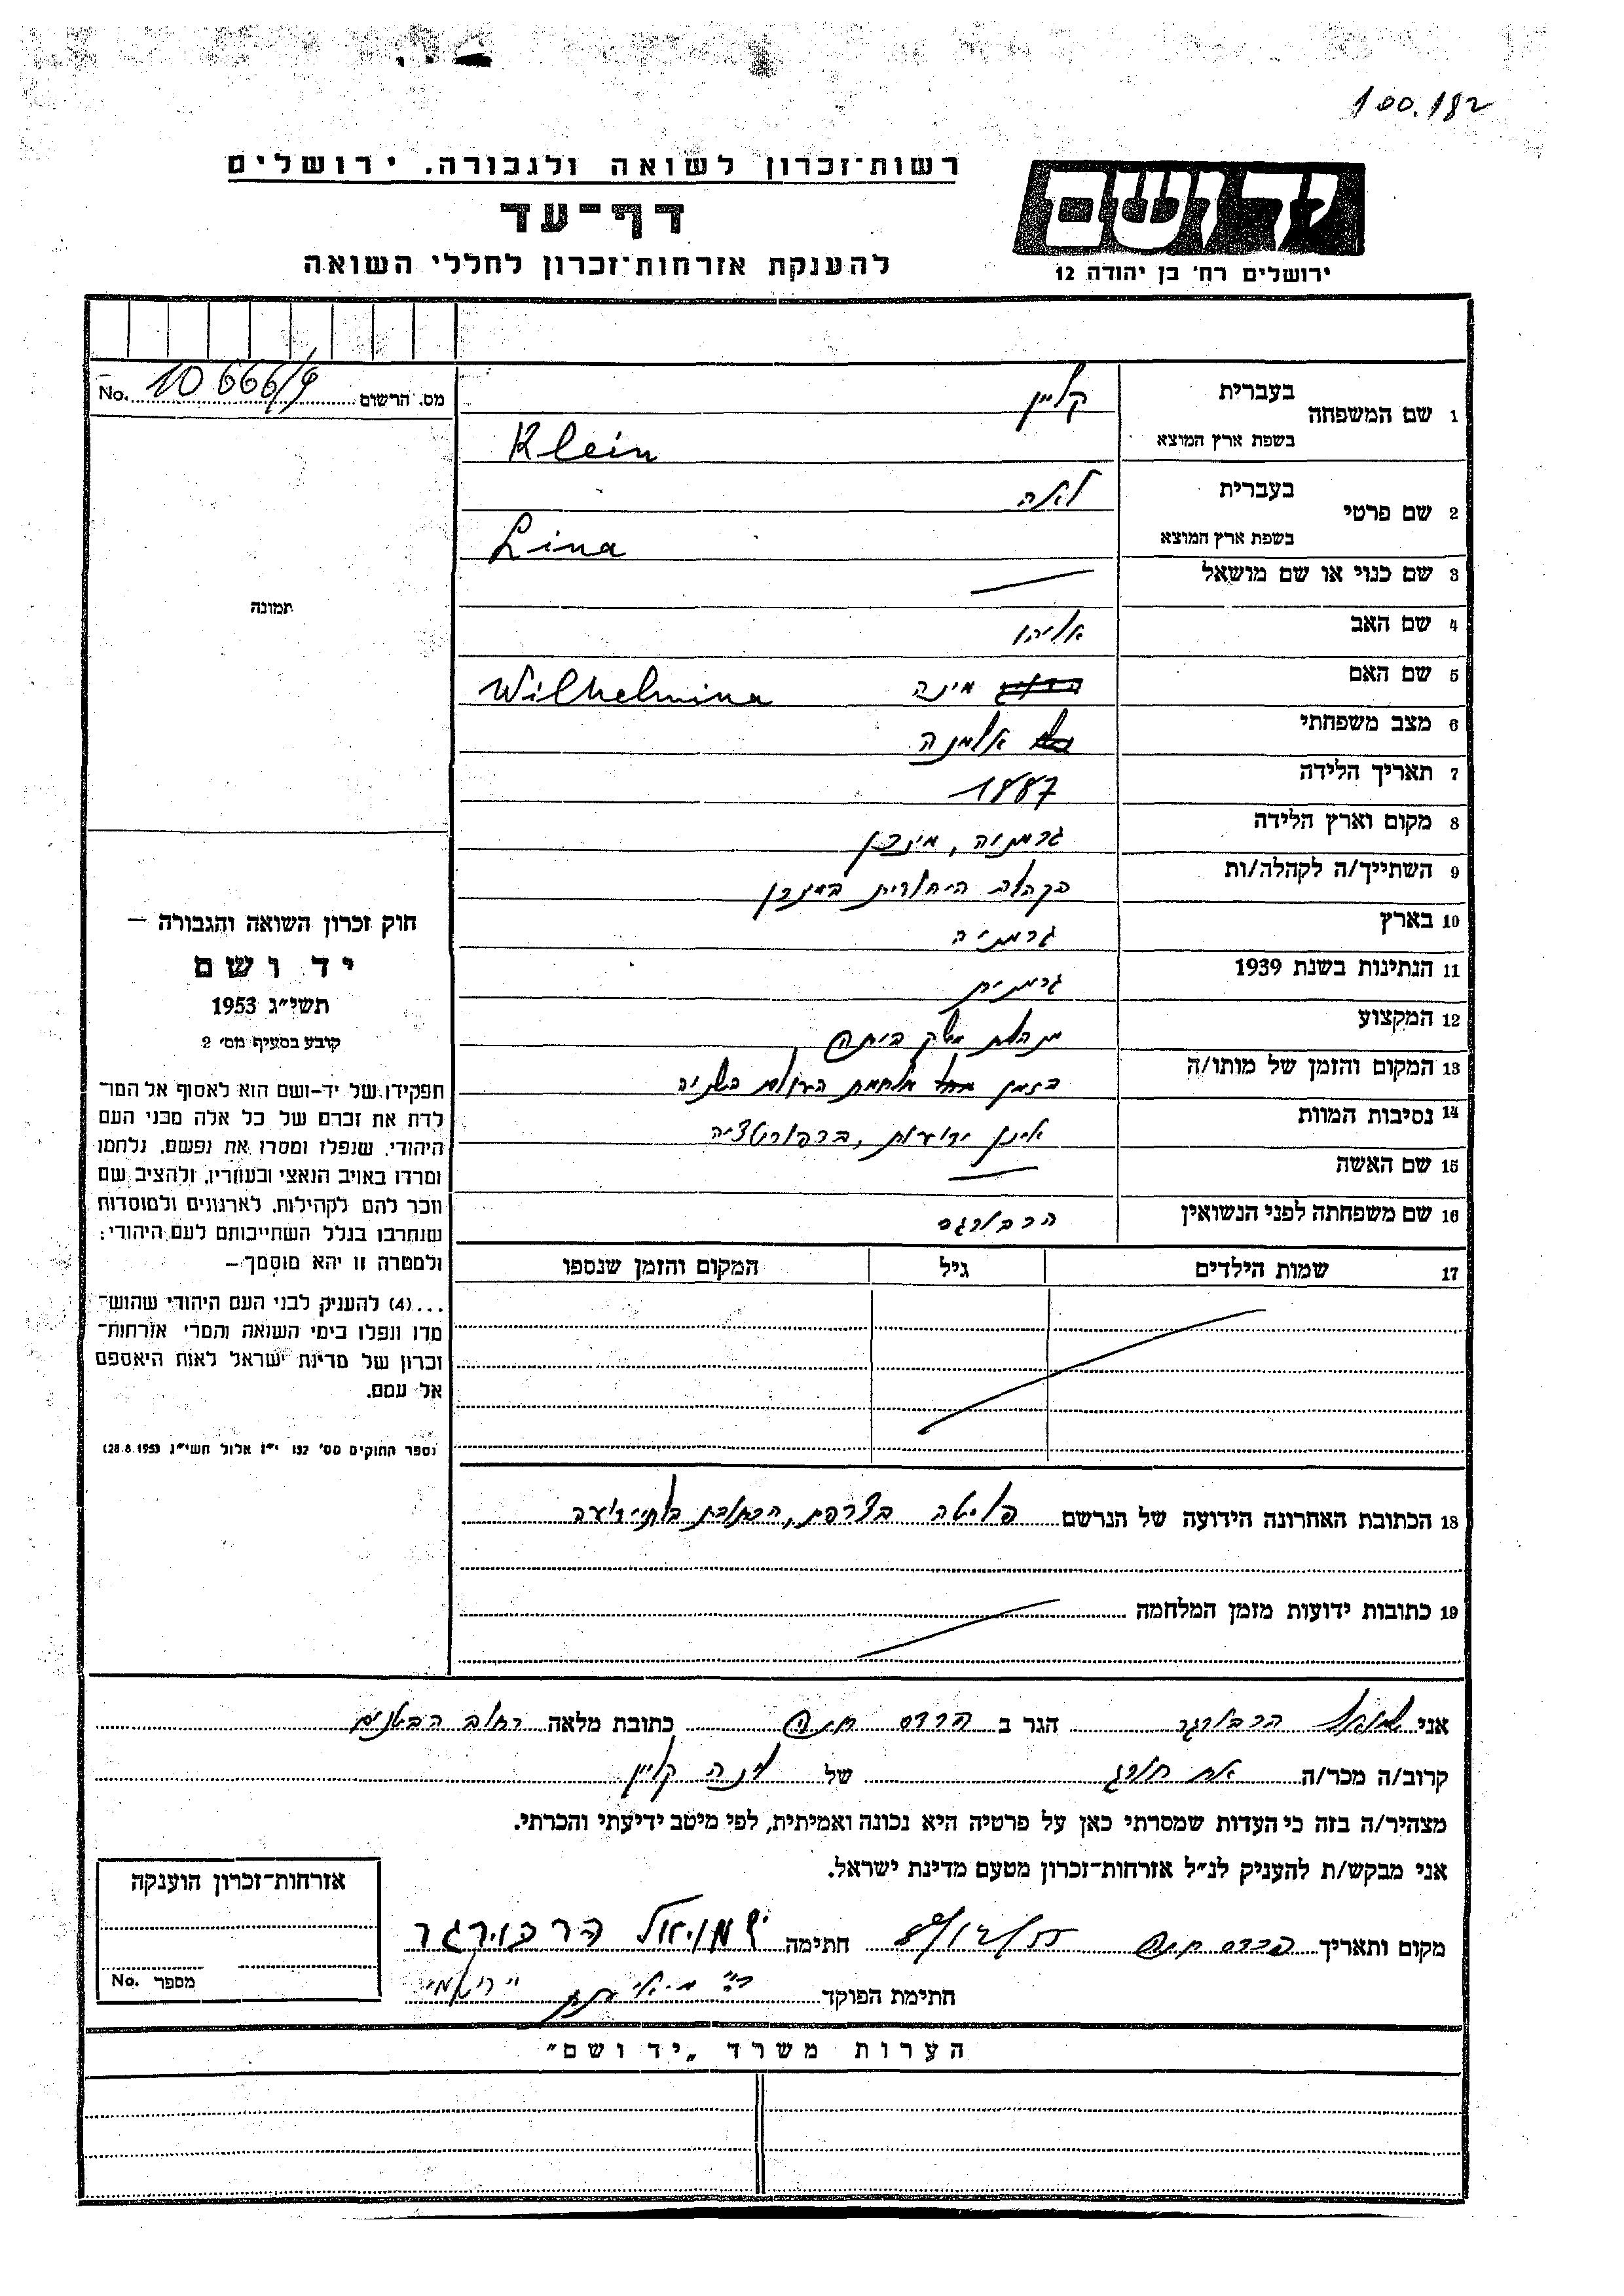 100.182
רשות־זכרון לשואה ולגבורה, ירושלים
דף־עד
להענקת אזרחות־זכרון לחללי השואה
יד ושם
ירושלים רח' בן יהודה 12
מס. הרשום 10666/9 No.
תמונה
1 שם המשפחה בעברית קליין
בשפת ארץ המוצא Klein
2 שם פרטי בעברית לאה
בשפת ארץ המוצא Lina
3 שם כנוי או שם מושאל
4 שם האב אליהו
5 שם האם מינה Wilhelmina
6 מצב משפחתי אלמנה
7 תאריך הלידה 1887
8 מקום וארץ הלידה גרמניה, מינכן
9 השתייך/ה לקהלה/ות הקהלה היהודית במינכן
10 בארץ גרמניה
11 הנתינות בשנת 1939 גרמנית
12 המקצוע מנהלת משק ביתה
13 המקום והזמן של מותו/ה בזמן מלחמת העולם השניה
14 נסיבות המוות אינן ידועות, בדפורטציה
15 שם האשה
16 שם משפחתה לפני הנשואין הרבורגר
17 שמות הילדים גיל המקום והזמן שנספו
חוק זכרון השואה והגבורה –
יד ושם
תשי"ג 1953
קובע בסעיף מס' 2
תפקידו של יד־ושם הוא לאסוף אל המו־
לדת את זכרם של כל אלה מבני העם
היהודי, שנפלו ומסרו את נפשם, נלחמו
ומרדו באויב הנאצי ובעוזריו, ולהציב שם
וזכר להם לקהילות, לארגונים ולמוסדות
שנחרבו בגלל השתייכותם לעם היהודי;
ולמטרה זו יהא מוסמך –
...(4) להעניק לבני העם היהודי שהוש־
מדו ונפלו בימי השואה והמרי אזרחות־
זכרון של מדינת ישראל לאות היאספם
אל עמם.
(ספר החוקים מס' 132 י"ז אלול תשי"ג 28.8.1953)
18 הכתובת האחרונה הידועה של הנרשם פליטה בצרפת, הכתובת בלתי ידועה
19 כתובות ידועות מזמן המלחמה
אני שמואל הרבורגר הגר ב פרדס חנה כתובת מלאה רחוב הבטנים
קרוב/ה מכר/ה את חורג של לינה קליין
מצהיר/ה בזה כי העדות שמסרתי כאן על פרטיה היא נכונה ואמיתית, לפי מיטב ידיעתי והכרתי.
אני מבקש/ת להעניק לנ"ל אזרחות־זכרון מטעם מדינת ישראל.
מקום ותאריך פרדס חנה חתימה שמואל הרבורגר
חתימת הפוקד
אזרחות־זכרון הוענקה
מספר No.
הערות משרד „יד ושם"